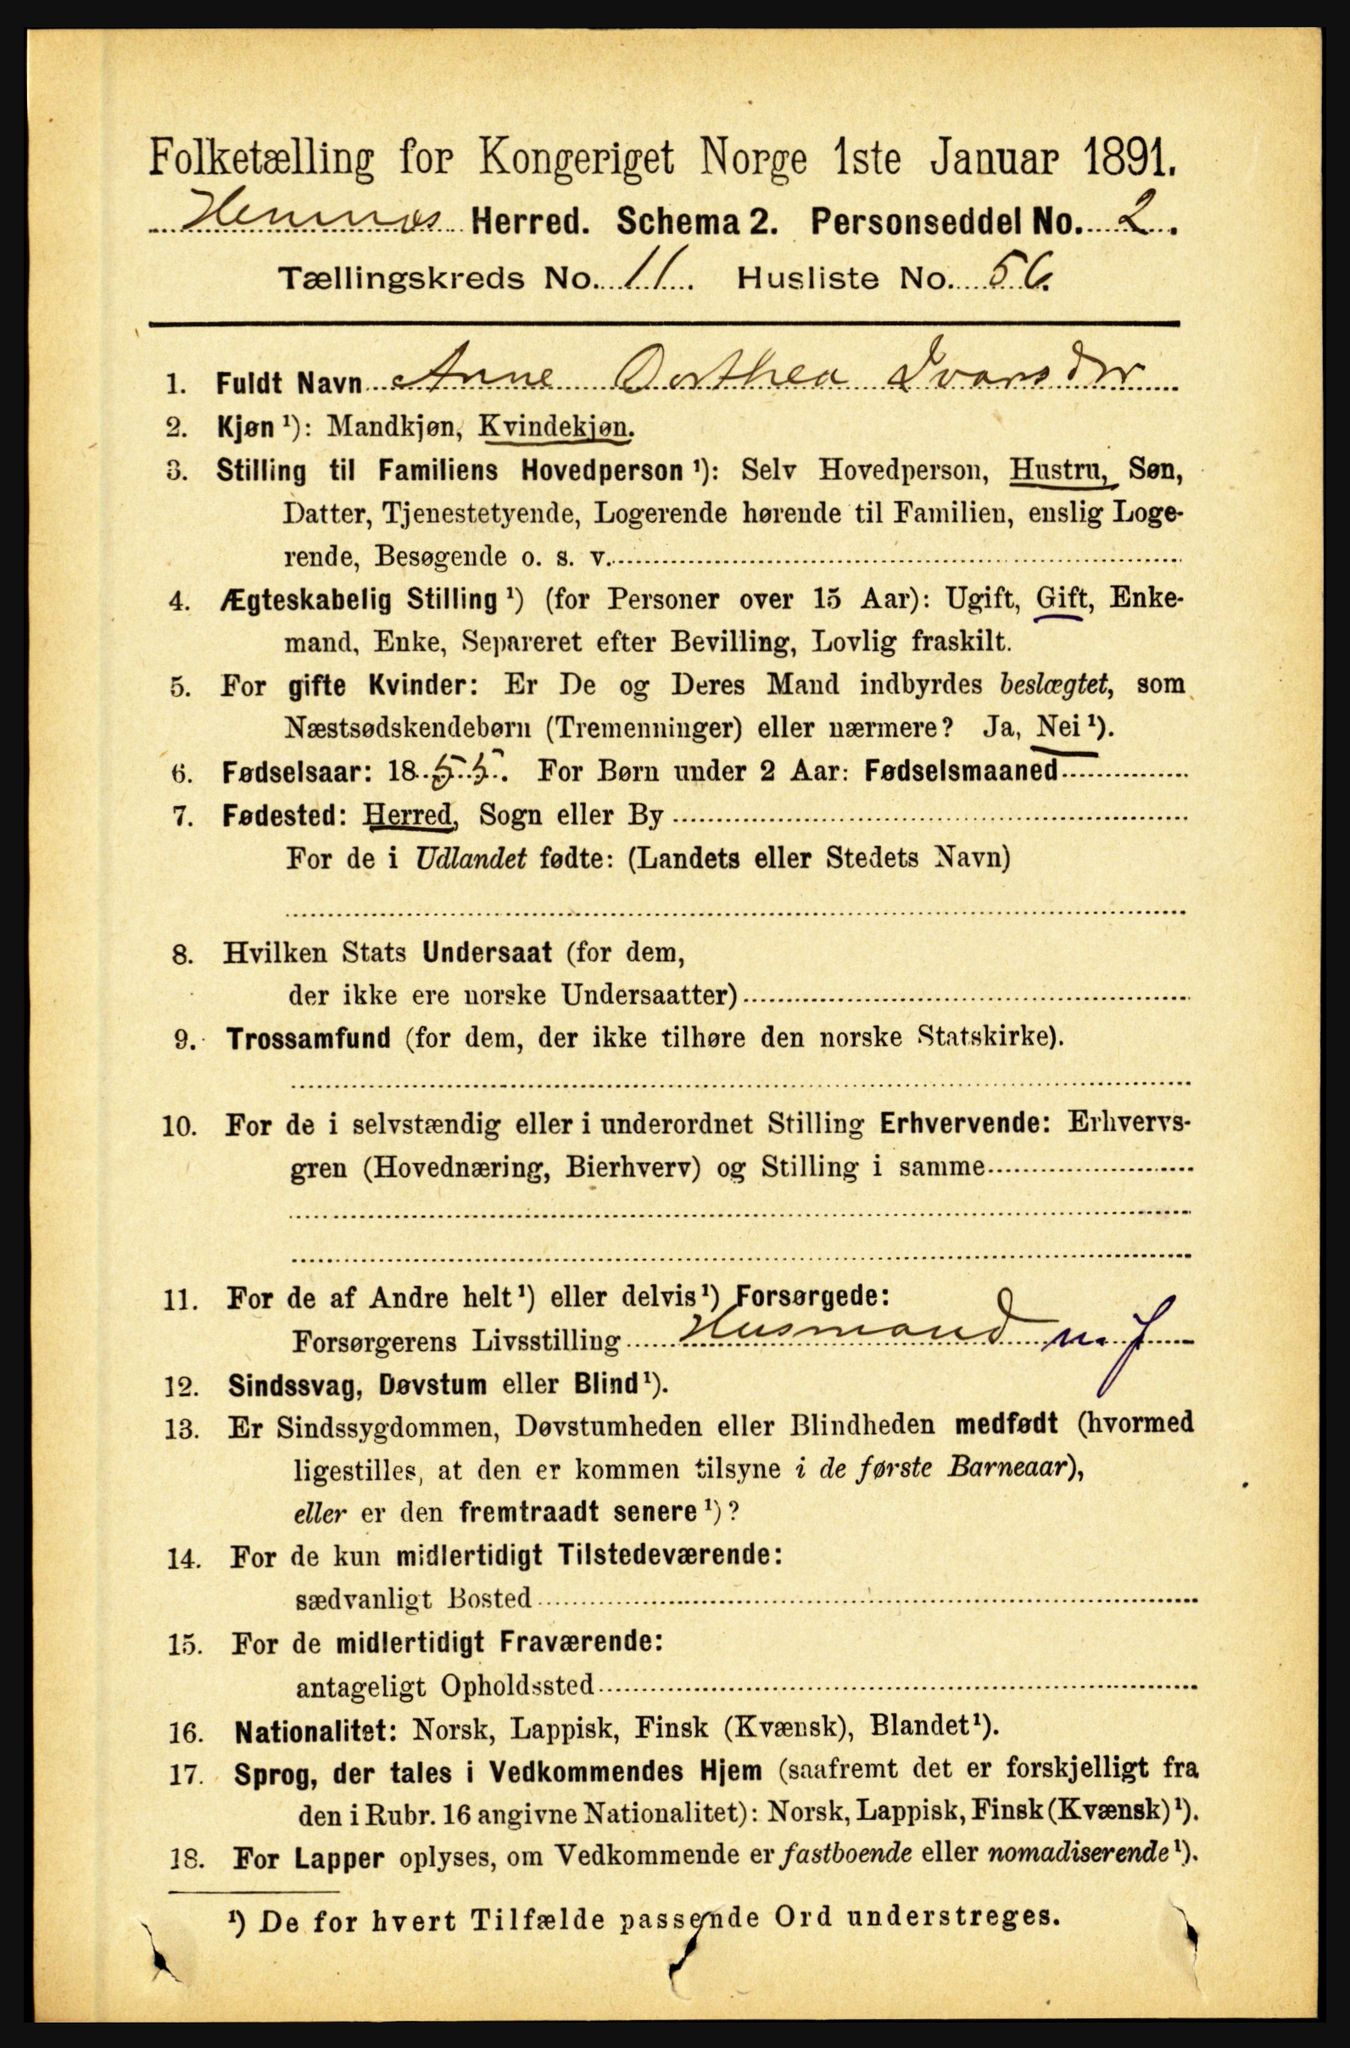 Folketælling for Kongeriget Norge 1ste Januar 1891.
Hemnes Herred. Schema 2. Personseddel No. 2.
Tællingskreds No. 11. Husliste No. 56.
1. Fuldt Navn Anne Dorthea Ivarsdtr
2. Kjøn ¹): Mandkjøn, Kvindekjøn.
3. Stilling til Familiens Hovedperson ¹): Selv Hovedperson, Hustru, Søn,
Datter, Tjenestetyende, Logerende hørende til Familien, enslig Loge-
rende, Besøgende o. s. v.
4. Ægteskabelig Stilling ¹) (for Personer over 15 Aar): Ugift, Gift, Enke-
mand, Enke, Separeret efter Bevilling, Lovlig fraskilt.
5. For gifte Kvinder: Er De og Deres Mand indbyrdes beslægtet, som
Næstsødskendebørn (Tremenninger) eller nærmere? Ja, Nei ¹).
6. Fødselsaar: 1855. For Børn under 2 Aar: Fødselsmaaned
7. Fødested: Herred, Sogn eller By
For de i Udlandet fødte: (Landets eller Stedets Navn)
8. Hvilken Stats Undersaat (for dem,
der ikke ere norske Undersaatter)
9. Trossamfund (for dem, der ikke tilhøre den norske Statskirke).
10. For de i selvstændig eller i underordnet Stilling Erhvervende: Erhvervs-
gren (Hovednæring, Bierhverv) og Stilling i samme
11. For de af Andre helt ¹) eller delvis ¹) Forsørgede:
Forsørgerens Livsstilling Husmand m. J
12. Sindssvag, Døvstum eller Blind ¹).
13. Er Sindssygdommen, Døvstumheden eller Blindheden medfødt (hvormed
ligestilles, at den er kommen tilsyne i de første Barneaar),
eller er den fremtraadt senere ¹)?
14. For de kun midlertidigt Tilstedeværende:
sædvanligt Bosted
15. For de midlertidigt Fraværende:
antageligt Opholdssted
16. Nationalitet: Norsk, Lappisk, Finsk (Kvænsk), Blandet ¹).
17. Sprog, der tales i Vedkommendes Hjem (saafremt det er forskjelligt fra
den i Rubr. 16 angivne Nationalitet): Norsk, Lappisk, Finsk (Kvænsk) ¹).
18. For Lapper oplyses, om Vedkommende er fastboende eller nomadiserende ¹).
¹) De for hvert Tilfælde passende Ord understreges.